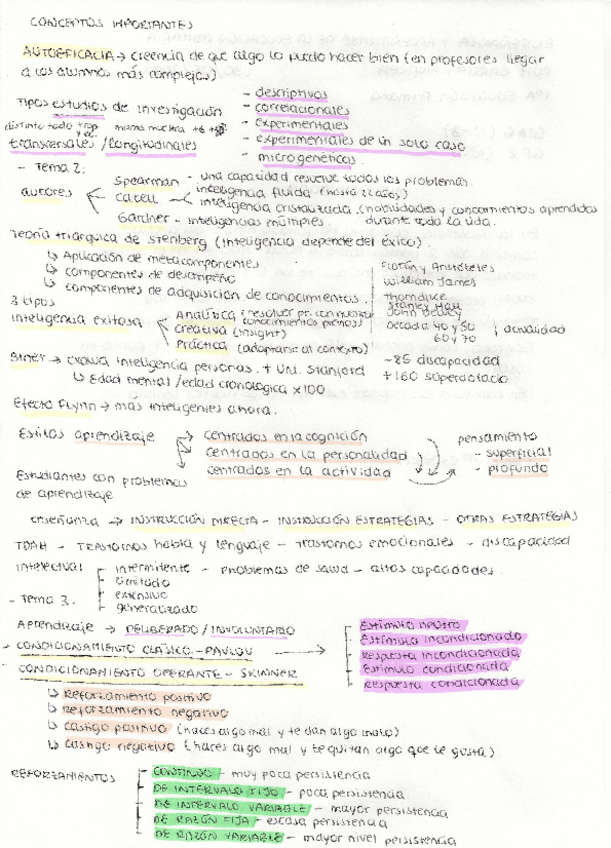 CONCEPTOS IMPORTANTES
AUTOEFICACIA → creencia de que algo lo puedo hacer bien (en profesores llegar
a los alumnos más complejos)
Tipos estudios de investigación
- descriptivos
- correlacionales
- experimentales
- experimentales de un solo caso
- microgenéticos.
distinto todo misma muestra
transversales / longitudinales
- Tema 2.
autores
Spearman - una capacidad resuelve todos los problemas.
Catell
inteligencia fluida (hasta 22 años)
inteligencia cristalizada (habilidades y conocimientos aprendidos
durante toda la vida.
Gardner - inteligencias múltiples.
Teoría triárquica de Stenberg (inteligencia depende del éxito).
↳ Aplicación de metacomponentes
↳ componentes de desempeño
↳ componentes de adquisición de conocimientos.
Platón y Aristóteles
William James
Thorndike
Stanley Hall
John Dewey
Década 40 y 50
60 y 70
actualidad
3 tipos
inteligencia exitosa
Analítica (resolver pr. con nuestros
conocimientos previos)
creativa (insight)
Práctica (adaptarse al contexto)
Binet → evalua inteligencia personas. + Uni. Stanford
↳ Edad mental / edad cronológica x 100
- 85 discapacidad
+ 160 superdotado
Efecto Flynn → más inteligentes ahora.
Estilos aprendizaje
centrados en la cognición
centrados en la personalidad
centrados en la actividad
pensamiento
- superficial
- profundo
Estudiantes con problemas
de aprendizaje
enseñanza → INSTRUCCIÓN DIRECTA - INSTRUCCIÓN ESTRATEGIAS - OTRAS ESTRATEGIAS
TDAH - TRASTORNOS habla y lenguaje - Trastornos emocionales - discapacidad
intelectual
intermitente - Problemas de salud - altas capacidades.
limitado
extensivo
generalizado
- Tema 3.
Aprendizaje → DELIBERADO / INVOLUNTARIO
- CONDICIONAMIENTO CLÁSICO - PAVLOV →
Estímulo neutro
Estímulo incondicionado
Respuesta incondicionada
Estímulo condicionada
Respuesta condicionada
- CONDICIONAMIENTO OPERANTE - SKINNER
↳ Reforzamiento positivo
↳ Reforzamiento negativo
↳ Castigo positivo (haces algo mal y te dan algo malo)
↳ Castigo negativo (haces algo mal y te quitan algo que te gusta)
REFORZAMIENTOS
CONTINUO - muy poca persistencia
DE INTERVALO FIJO - poca persistencia
DE INTERVALO VARIABLE - mayor persistencia
DE RAZÓN FIJA - escasa persistencia
DE RAZÓN VARIABLE - mayor nivel persistencia